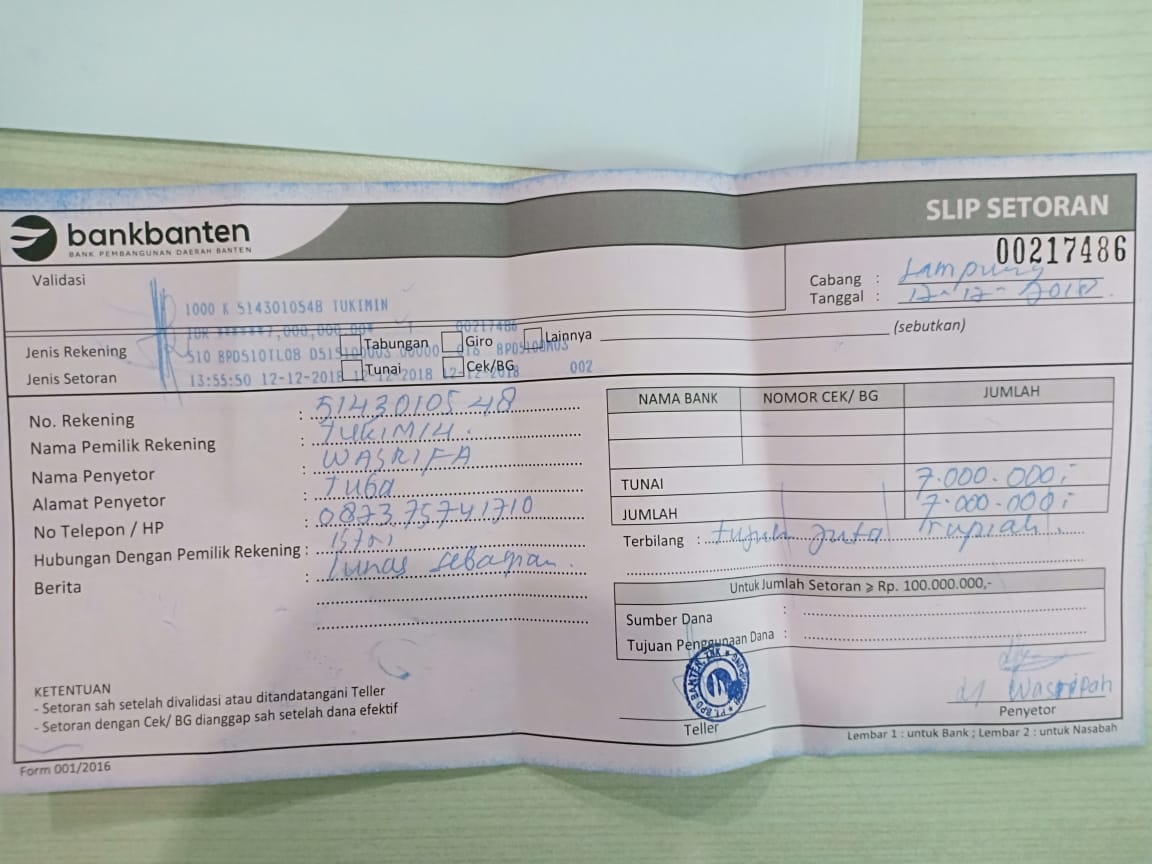 bankbanten
BANK PEMBANGUNAN DAERAH BANTEN
SLIP SETORAN
00217486
Validasi
Cabang : Lampung
Tanggal : 12-12-2018.
1000 K 5143010548 TUKIMIN
IDR ******7,000,000.00* 00217486
510 BPD510TL08 D515100003 00000 018
13:55:50 12-12-2018 12-12-2018 12-12-2018 002
Jenis Rekening Tabungan Giro Lainnya (sebutkan)
Jenis Setoran Tunai Cek/BG
No. Rekening : 5143010548
Nama Pemilik Rekening : TUKIMIN.
Nama Penyetor : WASRIFA
Alamat Penyetor : Tuba
No Telepon / HP : 087375741710
Hubungan Dengan Pemilik Rekening : istri
Berita : Lunas sebagian.
NAMA BANK NOMOR CEK/ BG JUMLAH
TUNAI 7.000.000,-
JUMLAH 7.000.000,-
Terbilang : tujuh juta rupiah.
Untuk Jumlah Setoran ⩾ Rp. 100.000.000,-
Sumber Dana :
Tujuan Penggunaan Dana :
KETENTUAN
- Setoran sah setelah divalidasi atau ditandatangani Teller
- Setoran dengan Cek/ BG dianggap sah setelah dana efektif
PT. BPD BANTEN, TBK
Teller
Wasripah
Penyetor
Lembar 1 : untuk Bank ; Lembar 2 : untuk Nasabah
Form 001/2016